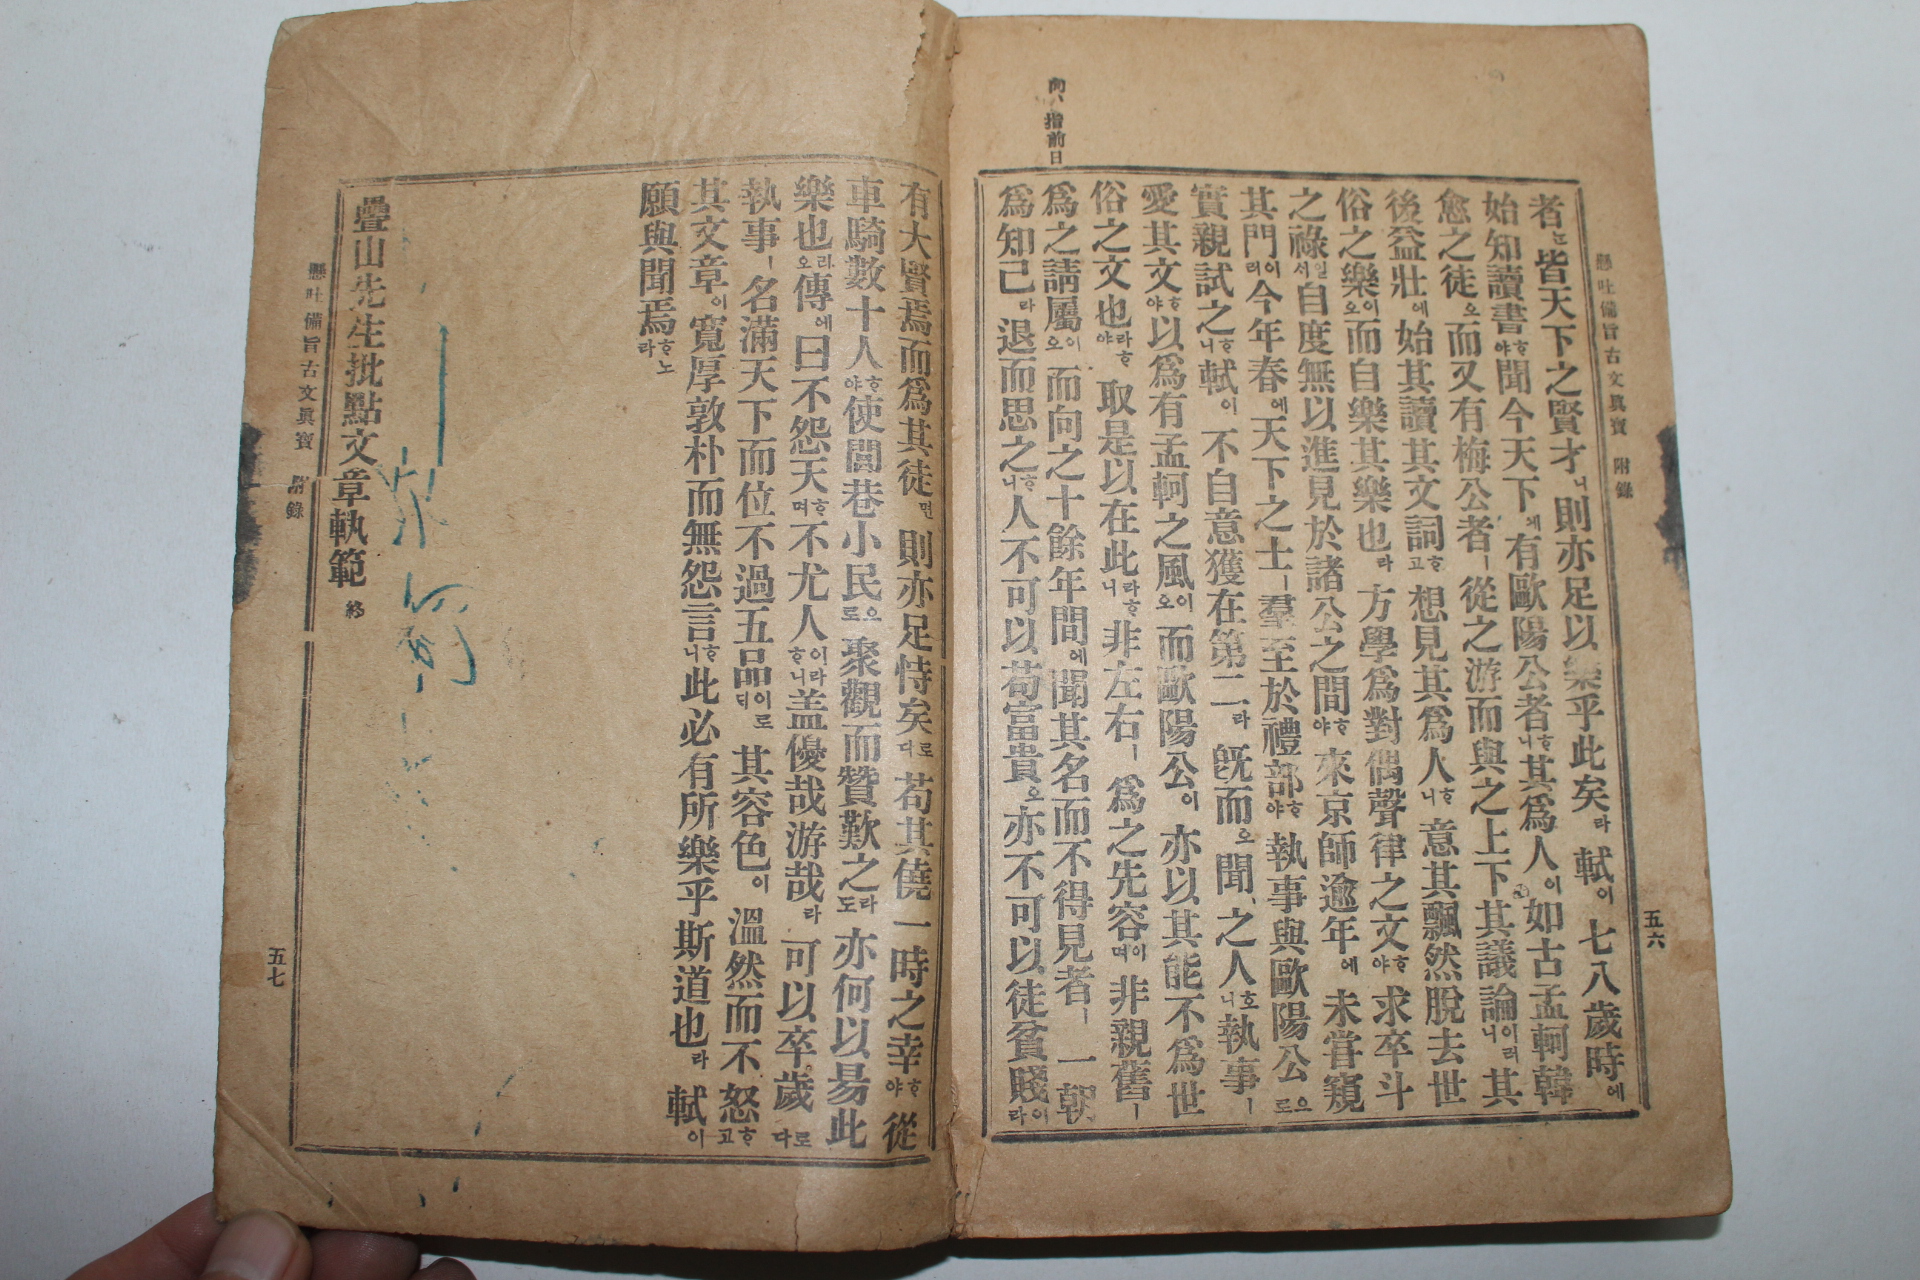 向、指前日
懸吐備旨古文眞寶 附錄
五六
者ᅵ皆天下之賢才니則亦足以樂乎此矣라軾이七八歲時에
始知讀書ᄒᆞ야聞今天下에有歐陽公者ᄒᆞ니其爲人이如古孟軻韓
愈之徒오而又有梅公者ᅵ從之游而與之上下其議論이러니其
後益壯에始其讀其文詞ᄒᆞ고想見其爲人ᄒᆞ니意其飄然脫去世
俗之樂이오而自樂其樂也라方學爲對偶聲律之文ᄒᆞ야求卒斗
之祿일ᄉᆡ自度無以進見於諸公之間ᄒᆞ야來京師逾年에未甞窺
其門이러니今年春에天下之士ᅵ羣至於禮部ᄒᆞ야執事與歐陽公으로
實親試之ᄒᆞ니軾이不自意獲在第二라旣而오聞之人호니執事ᅵ
愛其文ᄒᆞ야以爲有孟軻之風이오而歐陽公이亦以其能不爲世
俗之文也라ᄒᆞ야取是以在此라ᄒᆞ니非左右ᅵ爲之先容이며非親舊ᅵ
爲之請屬이오而向之十餘年間에聞其名而不得見者ᅵ一朝
爲知己라退而思之ᄒᆞ니人不可以苟富貴오亦不可以徒貧賤이라
有大賢焉而爲其徒면則亦足恃矣로다苟其僥一時之幸ᄒᆞ야從
車騎數十人ᄒᆞ야使閭巷小民으로聚觀而贊歎之라도亦何以易此
樂也리오傳에曰不怨天ᄒᆞ며不尤人이라ᄒᆞ니盖優哉游哉라可以卒歲로다
執事ᅵ名滿天下而位不過五品이로ᄃᆡ其容色이溫然而不怒ᄒᆞ고
其文章이寬厚敦朴而無怨言ᄒᆞ니此必有所樂乎斯道也라軾이
願與聞焉ᄒᆞ노라
疊山先生批點文章軌範 終
懸吐備旨古文眞寶 附錄
五七